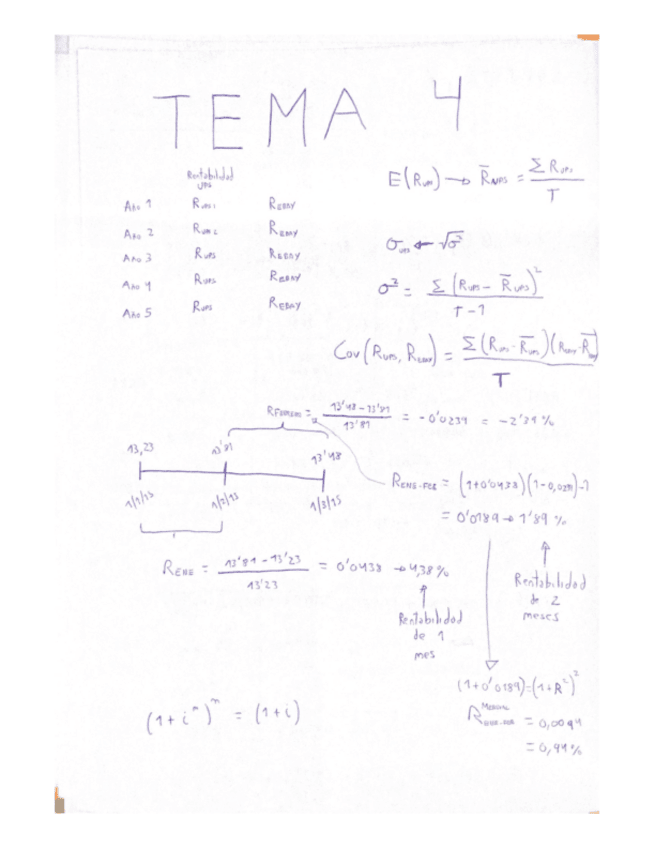 TEMA 4
Rentabilidad
UPS
Año 1 R UPS1 R EBAY
Año 2 R UPS2 R EBAY
Año 3 R UPS R EBAY
Año 4 R UPS R EBAY
Año 5 R UPS R EBAY
E(R UPS) → R̄ UPS = Σ R UPS / T
σ UPS ← √σ²
σ² = Σ (R UPS - R̄ UPS)² / T-1
Cov(R UPS, R EBAY) = Σ (R UPS - R̄ UPS)(R EBAY - R̄ EBAY) / T
= 13'48 - 13'81 / 13'81 = -0'0239 = -2'39 %
13,23 13'81 13'48
1/1/15 1/2/15 1/3/15
R ENE-FEB = (1+0'0438)(1-0,0239)-1
= 0'0189 → 1'89 %
R ENE = 13'81 - 13'23 / 13'23 = 0'0438 → 4,38 %
Rentabilidad
de 1
mes
Rentabilidad
de 2
meses
(1+0'0189)=(1+R²)²
R MENSUAL ENE-FEB = 0,0094
= 0,94 %
(1+iᵐ)ᵐ = (1+i)